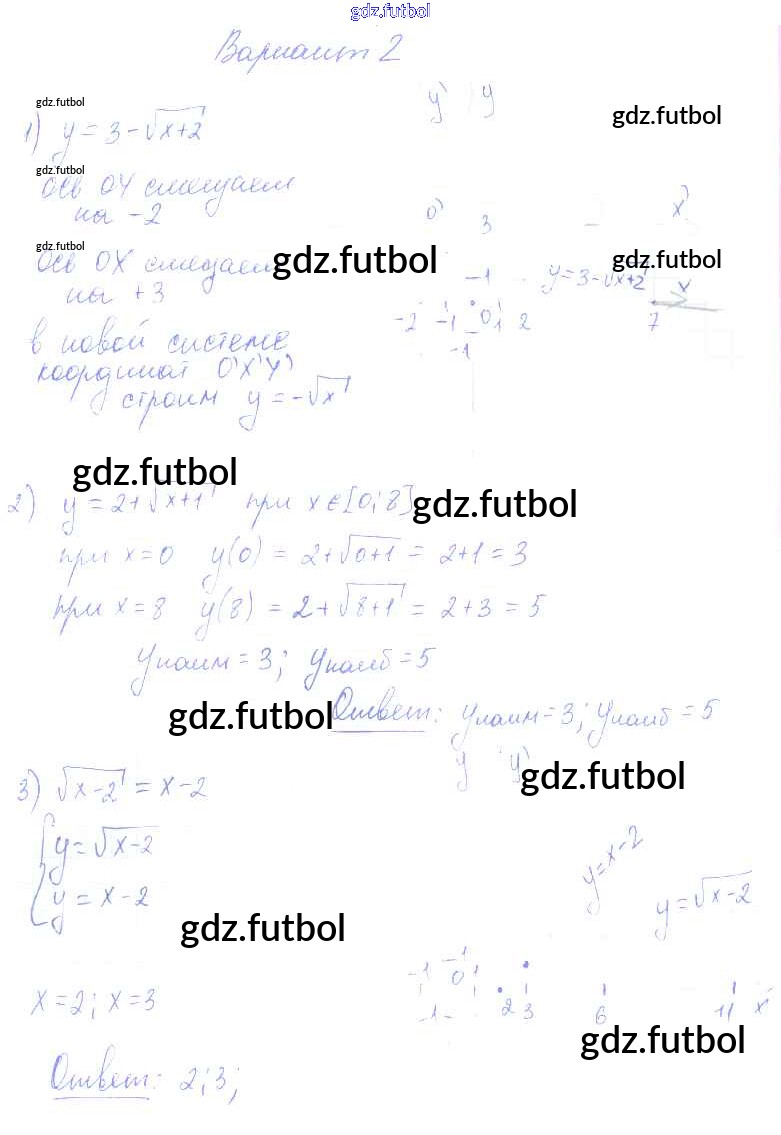 gdz.futbol
Вариант 2
gdz.futbol
1) y = 3 - √x+2
y' y
gdz.futbol
gdz.futbol
ось OY смещаем
на -2
0' 3 x'
gdz.futbol
ось OX смещаем
gdz.futbol
gdz.futbol
на +3
-1 y = 3 - √x+2 x
-2 -1 0 1 2 7
-1
в новой системе
координат O'X'Y'
строим y = -√x
gdz.futbol
2) y = 2 + √x+1 при x ∈ [0; 8]
gdz.futbol
при x = 0 y(0) = 2 + √0+1 = 2 + 1 = 3
при x = 8 y(8) = 2 + √8+1 = 2 + 3 = 5
yнаим = 3; yнаиб = 5
gdz.futbol
Ответ: yнаим = 3; yнаиб = 5
y y'
gdz.futbol
3) √x-2 = x - 2
y = √x-2
y = x - 2
y = x - 2
y = √x-2
gdz.futbol
-1 -1 0 1
-1 2 3 6 11 x'
x = 2; x = 3
gdz.futbol
Ответ: 2; 3;